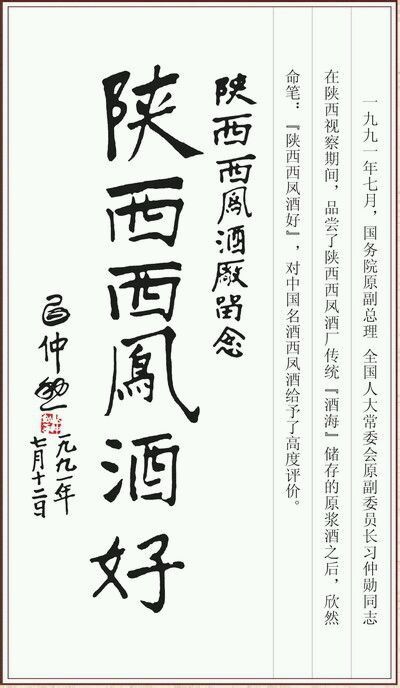 一九九一年七月，国务院原副总理 全国人大常委会原副委员长习仲勋同志
在陕西视察期间，品尝了陕西西凤酒厂传统『酒海』储存的原浆酒之后，欣然
命笔：『陕西西凤酒好』，对中国名酒西凤酒给予了高度评价。
陕西西鳳酒廠留念
陕西西鳳酒好
習仲勛
一九九一年
七月十二日